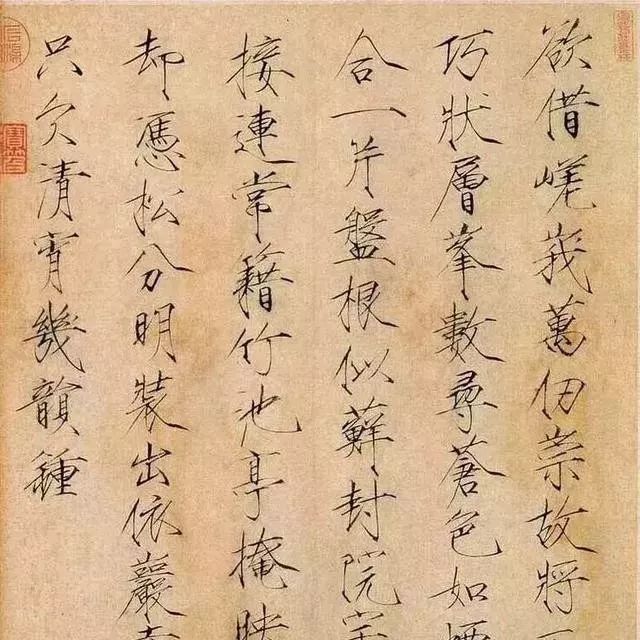 欲借嵯峩萬仞崇故將
巧狀層峯數尋蒼色如
合一片盤根似蘚封院
接連常籍竹池亭掩映
却憑松分明裝出依巖
只欠清宵幾韻鍾